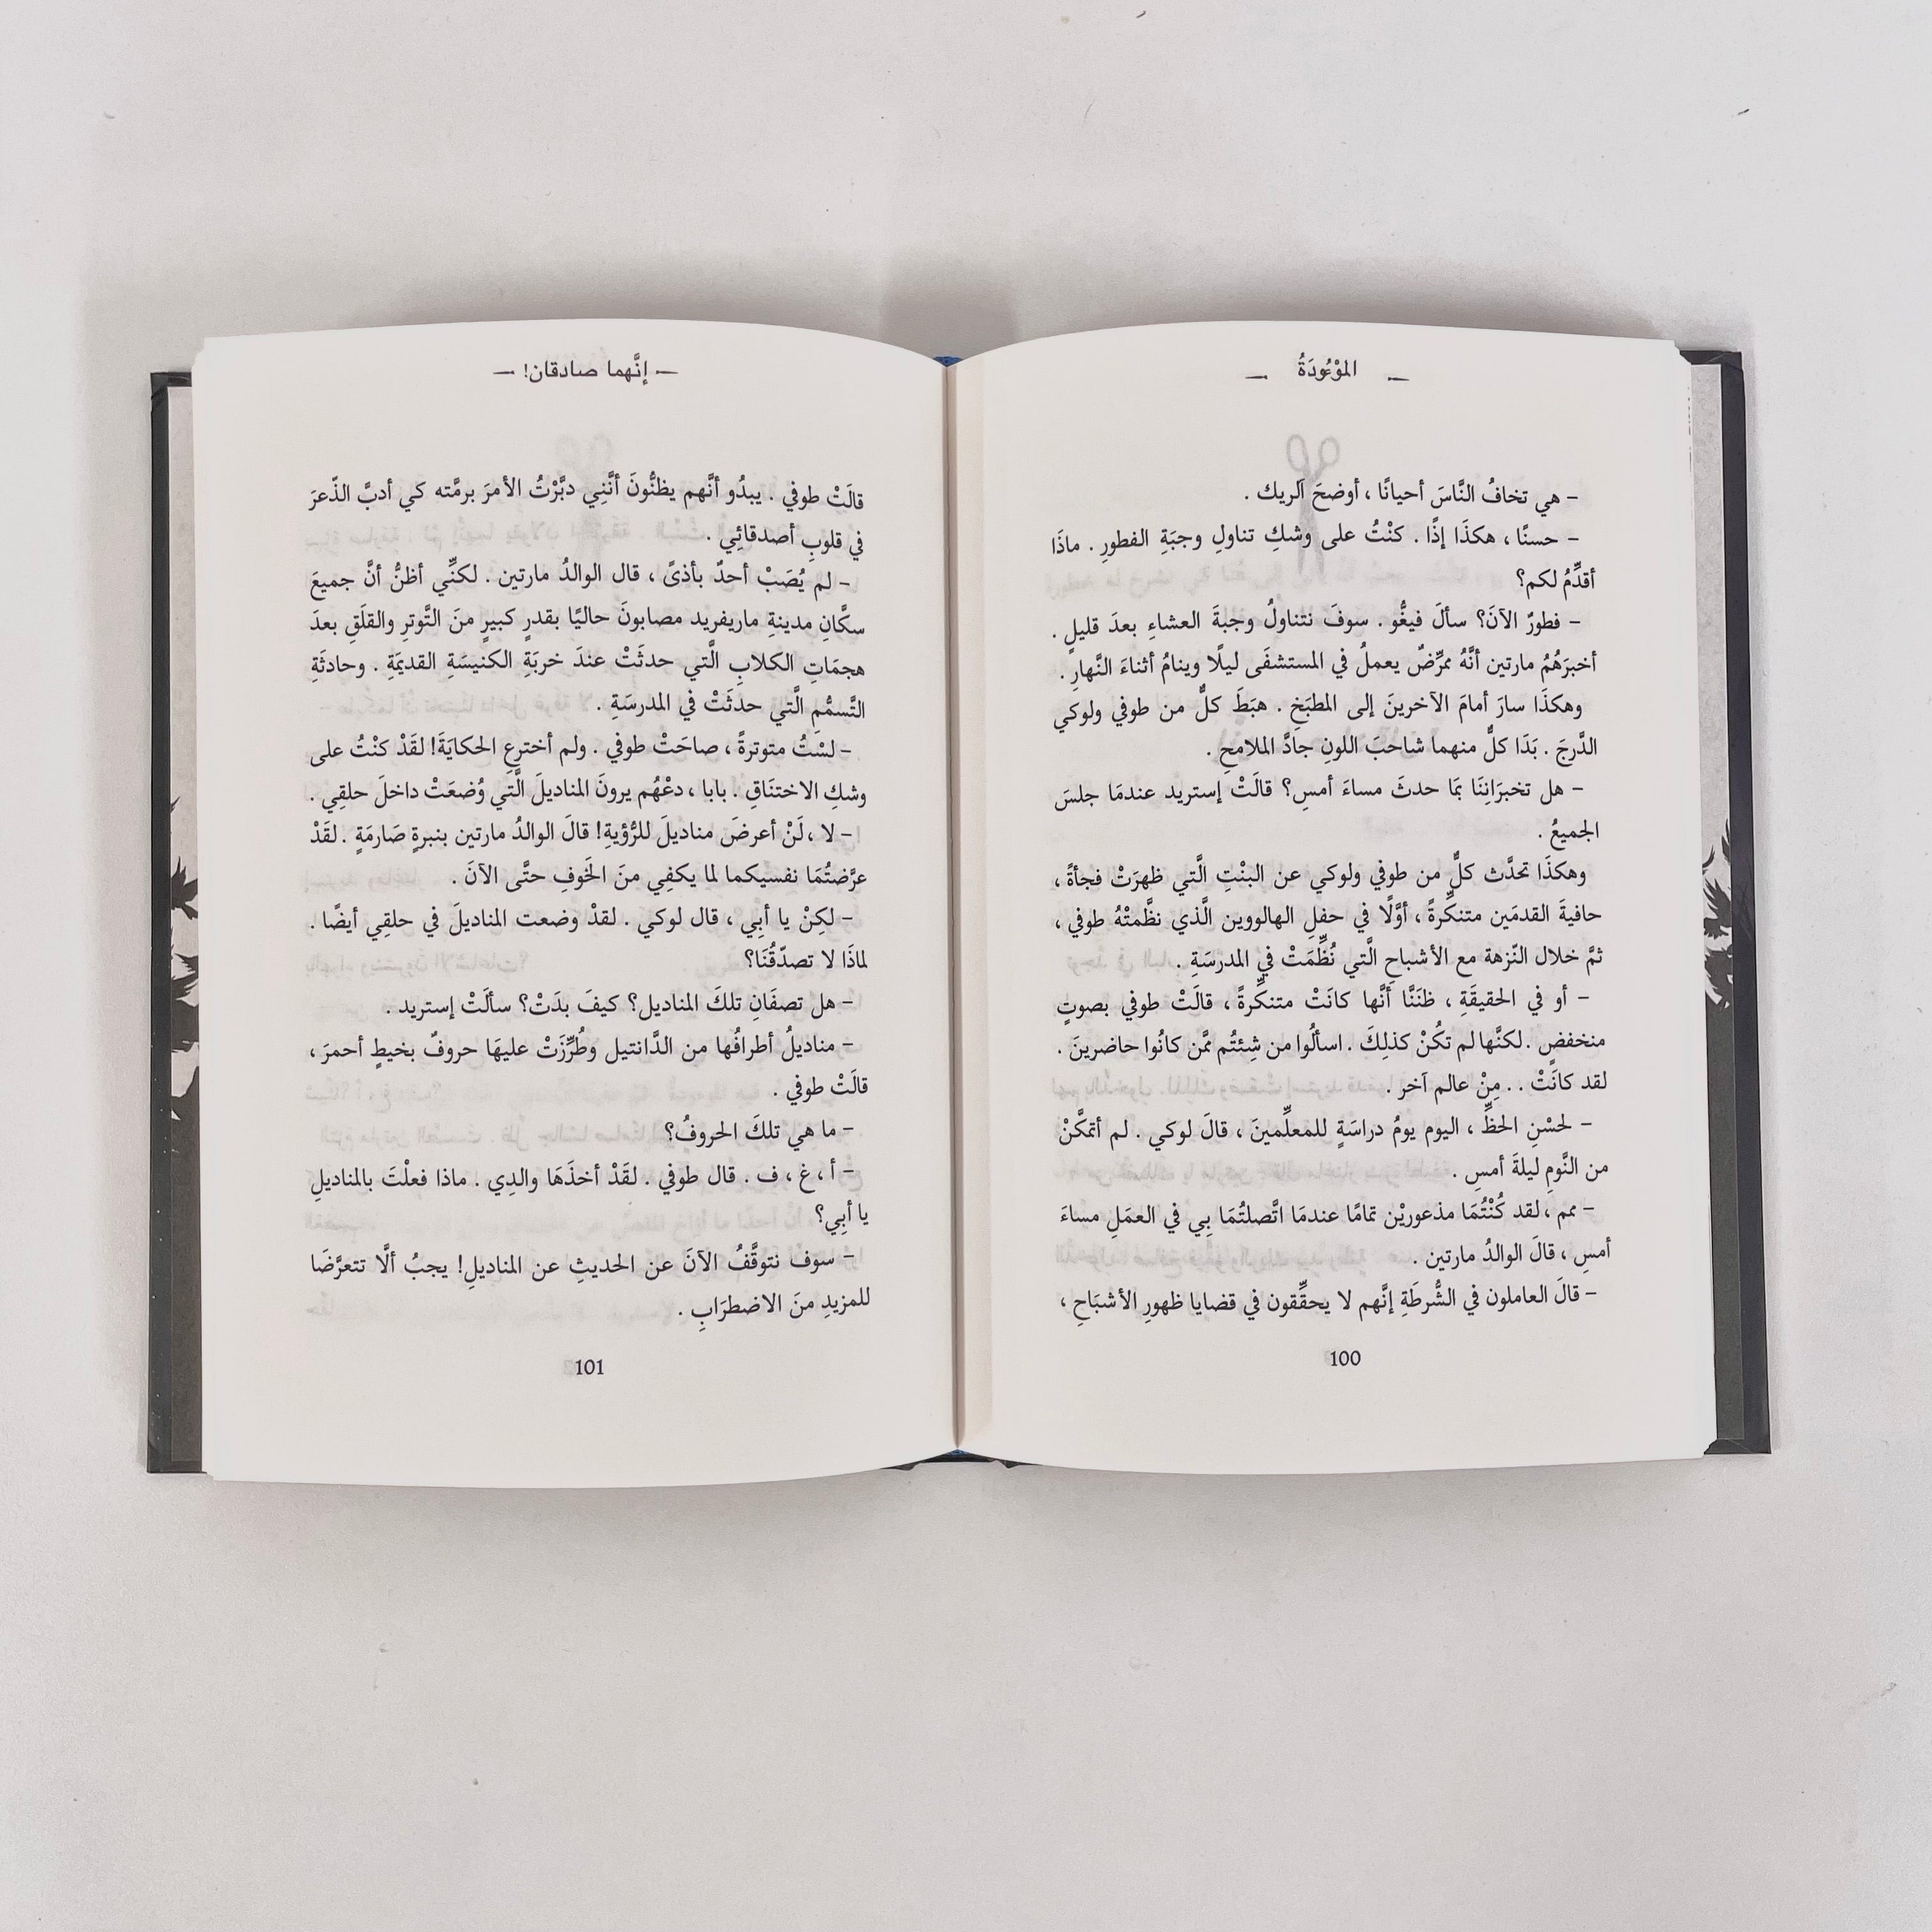 الموْءُودَةُ
– هي تخافُ النَّاسَ أحيانًا ، أوضحَ ألريك .
– حسنًا ، هكذَا إذًا . كنْتُ على وشكِ تناولِ وجبَةِ الفطورِ . ماذَا
أقدِّمُ لكم؟
– فطورٌ الآنَ؟ سألَ فيغُّو . سوفَ نتناولُ وجبةَ العشاءِ بعدَ قليلٍ .
أخبرَهُمُ مارتين أنَّهُ ممرِّضٌ يعملُ في المستشفَى ليلًا وينامُ أثناءَ النَّهارِ .
وهكذَا سارَ أمامَ الآخرينَ إلى المطبَخِ . هبَطَ كلٌّ من طوفي ولوكي
الدَّرجَ . بَدَا كلٌّ منهما شاحبَ اللونِ جادَّ الملامحِ .
– هل تخبرَانِنَا بمَا حدثَ مساءَ أمسِ؟ قالَتْ إستريد عندمَا جلسَ
الجميعُ .
وهكذَا تحدَّث كلٌّ من طوفي ولوكي عن البنْتِ الَّتي ظهرَتْ فجأةً ،
حافيةَ القدمَين متنكِّرةً ، أوَّلًا في حفلِ الهالووين الَّذي نظَّمتْهُ طوفي ،
ثمَّ خلال النّزهة مع الأشباحِ الَّتي نُظِّمَتْ في المدرسَةِ .
– أو في الحقيقَةِ ، ظنَنَّا أنَّها كانَتْ متنكِّرةً ، قالَتْ طوفي بصوتٍ
منخفضٍ . لكنَّها لم تكُنْ كذلِكَ . اسألُوا من شِئتُم ممَّن كانُوا حاضرينَ .
لقد كانَتْ . . مِنْ عالم آخر .
– لحسْنِ الحظِّ ، اليوم يومُ دراسَةٍ للمعلِّمينَ ، قالَ لوكي . لم أتمكَّنْ
من النَّومِ ليلةَ أمسِ .
– مم ، لقد كُنْتُمَا مذعوريْن تمامًا عندمَا اتَّصلتُمَا بِي في العمَلِ مساءَ
أمسِ ، قالَ الوالدُ مارتين .
– قالَ العاملون في الشُّرطَةِ إنَّهم لا يحقِّقون في قضايا ظهورِ الأشبَاحِ ،
100
إنَّهما صادقان!
قالَتْ طوفي . يبدُو أنَّهم يظنُّونَ أنَّنِي دبَّرْتُ الأمرَ برمَّته كي أدبَّ الذّعرَ
في قلوبِ أصدقائِي .
– لم يُصَبْ أحدٌ بأذىً ، قال الوالدُ مارتين . لكنِّي أظنُّ أنَّ جميعَ
سكَّانِ مدينةِ ماريفريد مصابونَ حاليًا بقدرٍ كبيرٍ منَ التَّوترِ والقلَقِ بعدَ
هجمَاتِ الكلابِ الَّتي حدثَتْ عندَ خربَةِ الكنيسَةِ القديمَةِ . وحادثَةِ
التَّسمُّمِ الَّتي حدثَتْ في المدرسَةِ .
– لسْتُ متوترةً ، صاحَتْ طوفي . ولم أخترعِ الحكايَةَ! لقَدْ كنْتُ على
وشكِ الاختنَاقِ . بابا ، دعْهُم يرونَ المناديلَ الَّتي وُضعَتْ داخلَ حلقِي .
– لا ، لَنْ أعرضَ مناديلَ للرُّؤيةِ! قالَ الوالدُ مارتين بنبرةٍ صَارمَةٍ . لقَدْ
عرَّضتُمَا نفسيكما لما يكفِي منَ الخَوفِ حتَّى الآنَ .
– لكِنْ يا أبِي ، قال لوكي . لقدْ وضعت المناديلَ في حلقِي أيضًا .
لماذَا لا تصدّقُنَا؟
– هل تصفَانِ تلكَ المناديل؟ كيفَ بدَتْ؟ سألَتْ إستريد .
– مناديلُ أطرافُها من الدَّانتيل وطُرِّزَتْ عليهَا حروفٌ بخيطٍ أحمرَ ،
قالَتْ طوفي .
– ما هي تلكَ الحروفُ؟
– أ ، غ ، ف . قال طوفي . لقَدْ أخذَهَا والدِي . ماذا فعلْتَ بالمناديلِ
يا أبِي؟
– سوف نتوقَّفُ الآنَ عن الحديثِ عن المناديلِ! يجبُ ألَّا تتعرَّضَا
للمزيدِ منَ الاضطرَابِ .
101